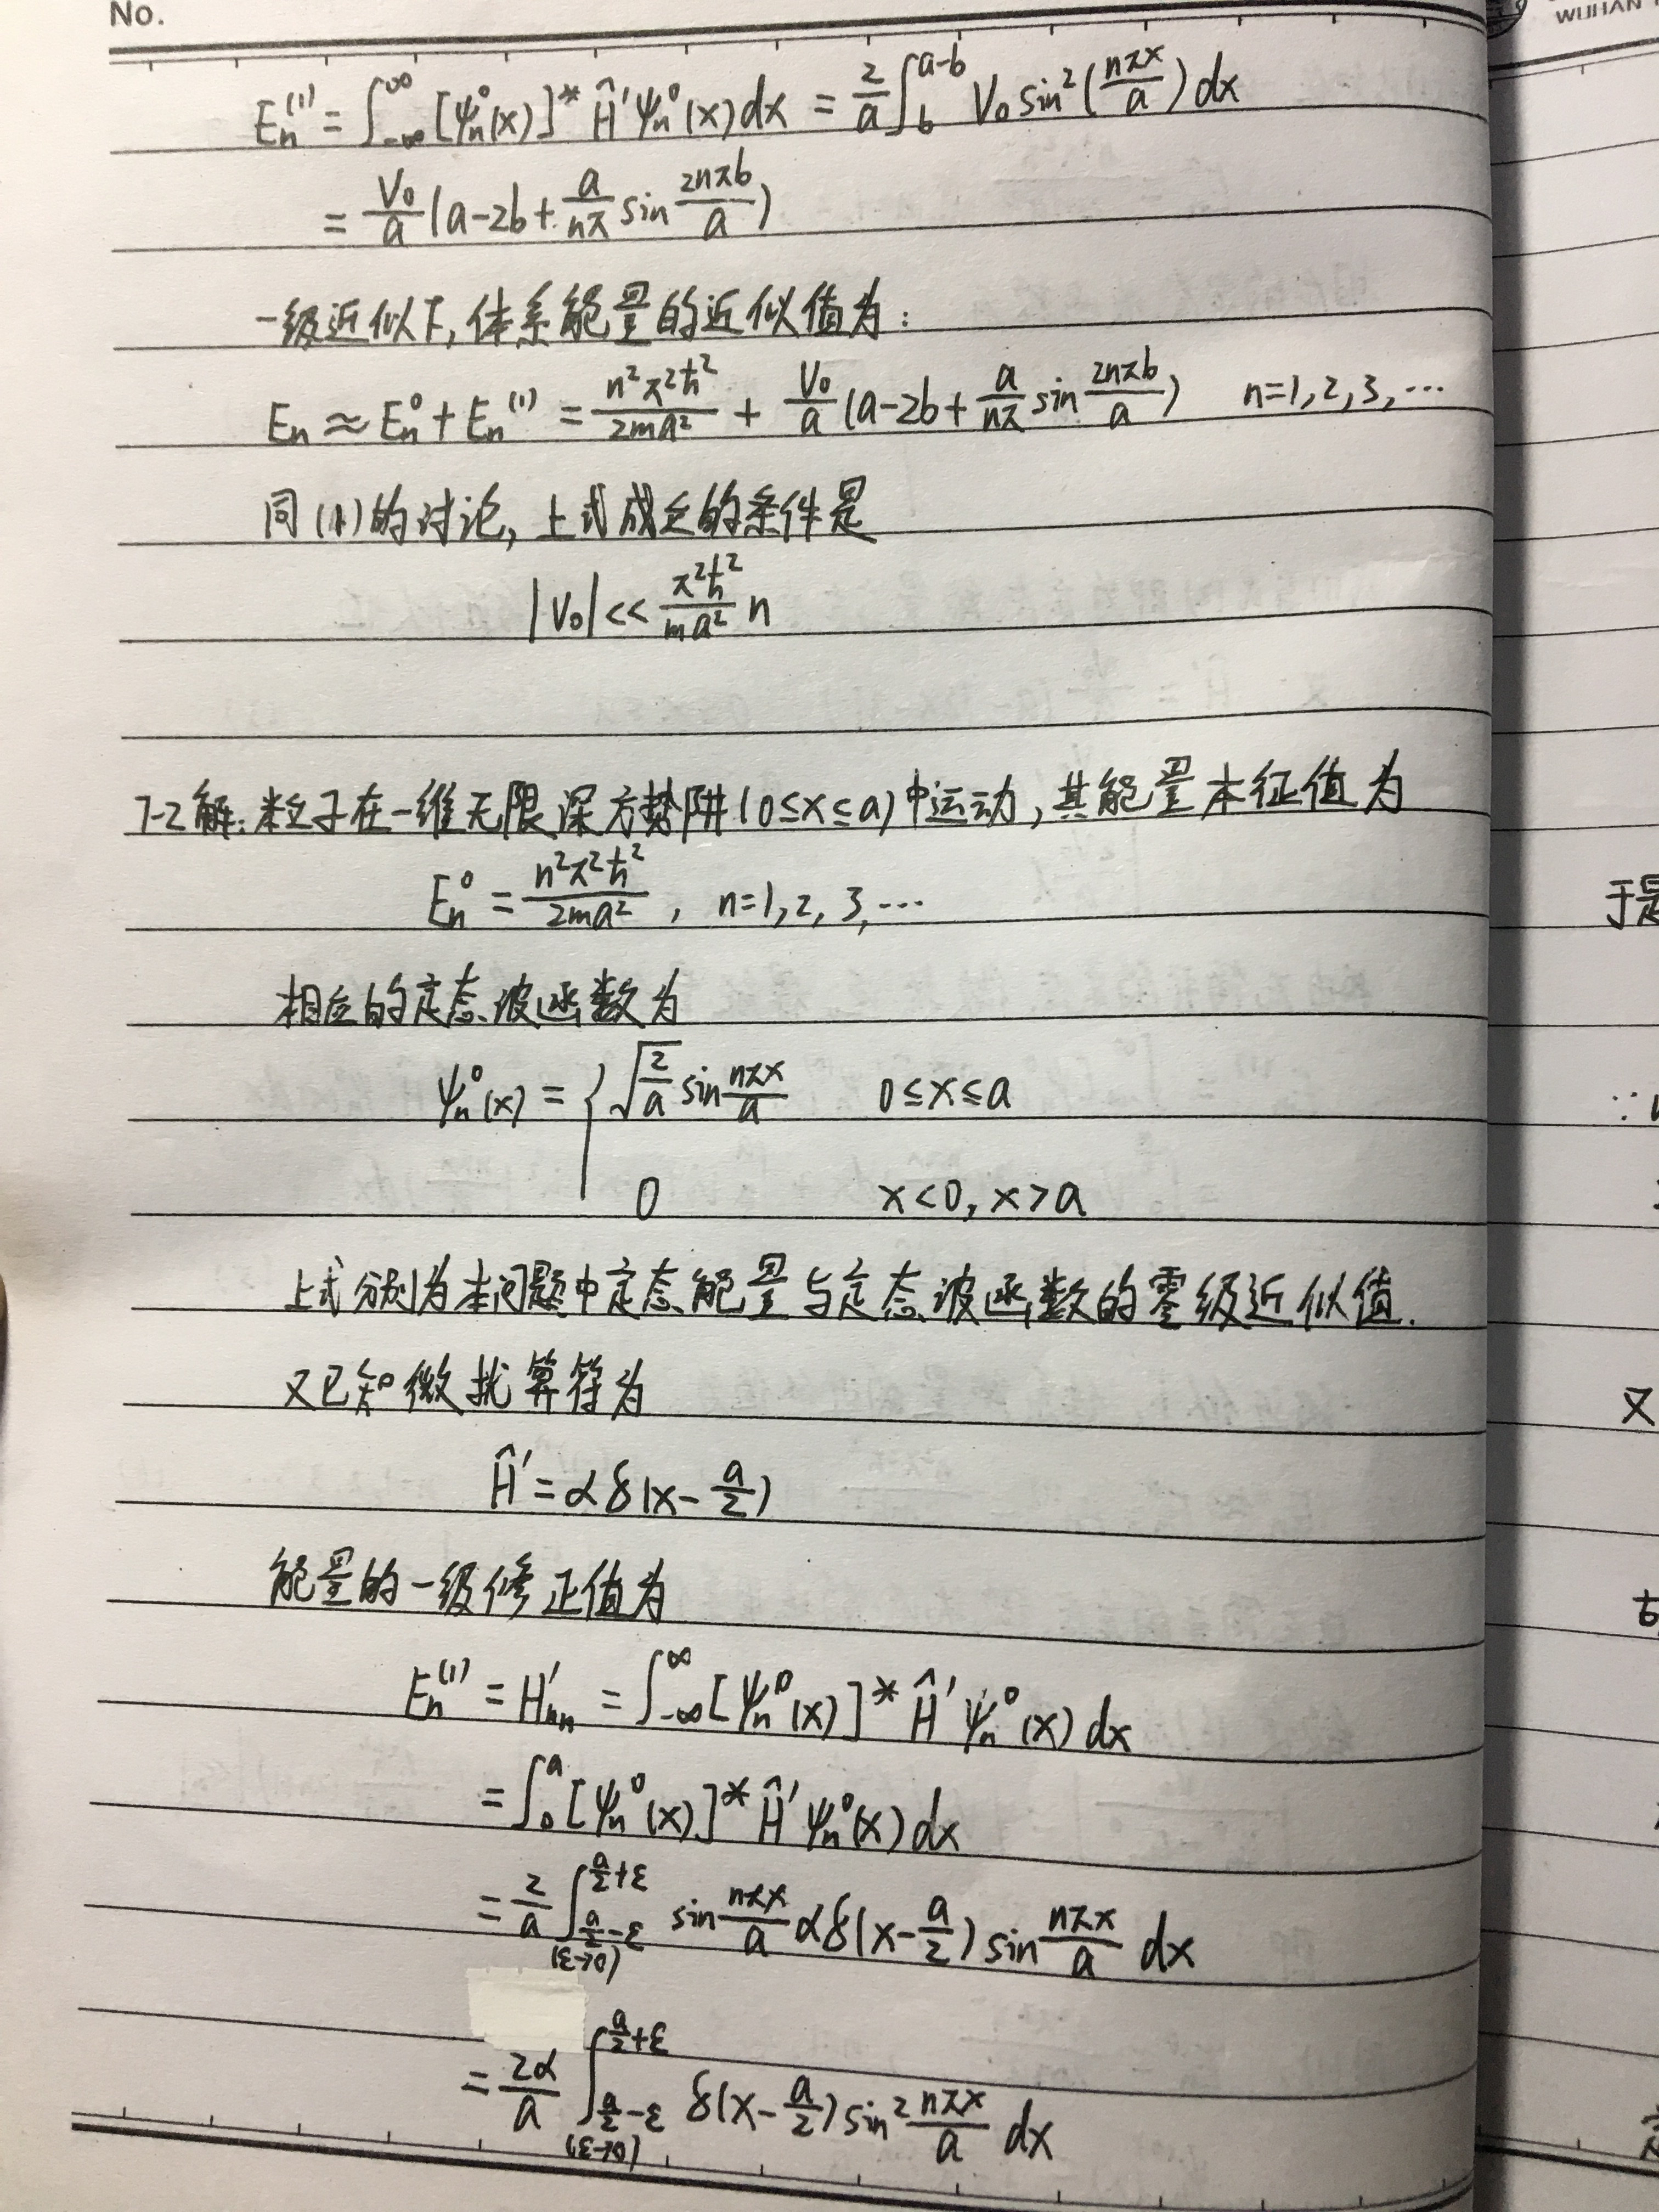 No.
WUHAN
Eₙ⁽¹⁾ = ∫_{-∞}^{∞} [ψₙ⁰(x)]* Ĥ′ψₙ⁰(x)dx = 2/a ∫_b^{a-b} V₀ sin²(nπx/a) dx
= V₀/a (a-2b+ a/nπ sin 2nπb/a)
一级近似下,体系能量的近似值为:
Eₙ ≈ Eₙ⁰ + Eₙ⁽¹⁾ = n²π²ħ²/2ma² + V₀/a (a-2b+ a/nπ sin 2nπb/a) n=1,2,3,…
同(1)的讨论,上式成立的条件是
|V₀| << π²ħ²/ma² n
7-2解:粒子在一维无限深方势阱(0≤x≤a)中运动,其能量本征值为
Eₙ⁰ = n²π²ħ²/2ma² , n=1,2,3,…
相应的定态波函数为
ψₙ⁰(x) = { √(2/a) sin nπx/a 0≤x≤a
0 x<0, x>a
上式分别为本问题中定态能量与定态波函数的零级近似值.
又已知微扰算符为
Ĥ′ = αδ(x- a/2)
能量的一级修正值为
Eₙ⁽¹⁾ = H′ₙₙ = ∫_{-∞}^{∞} [ψₙ⁰(x)]* Ĥ′ψₙ⁰(x) dx
= ∫_0^a [ψₙ⁰(x)]* Ĥ′ψₙ⁰(x) dx
= 2/a ∫_{a/2-ε (ε→0)}^{a/2+ε} sin nπx/a αδ(x- a/2) sin nπx/a dx
= 2α/a ∫_{a/2-ε (ε→0)}^{a/2+ε} δ(x- a/2) sin² nπx/a dx
于是
∵
又